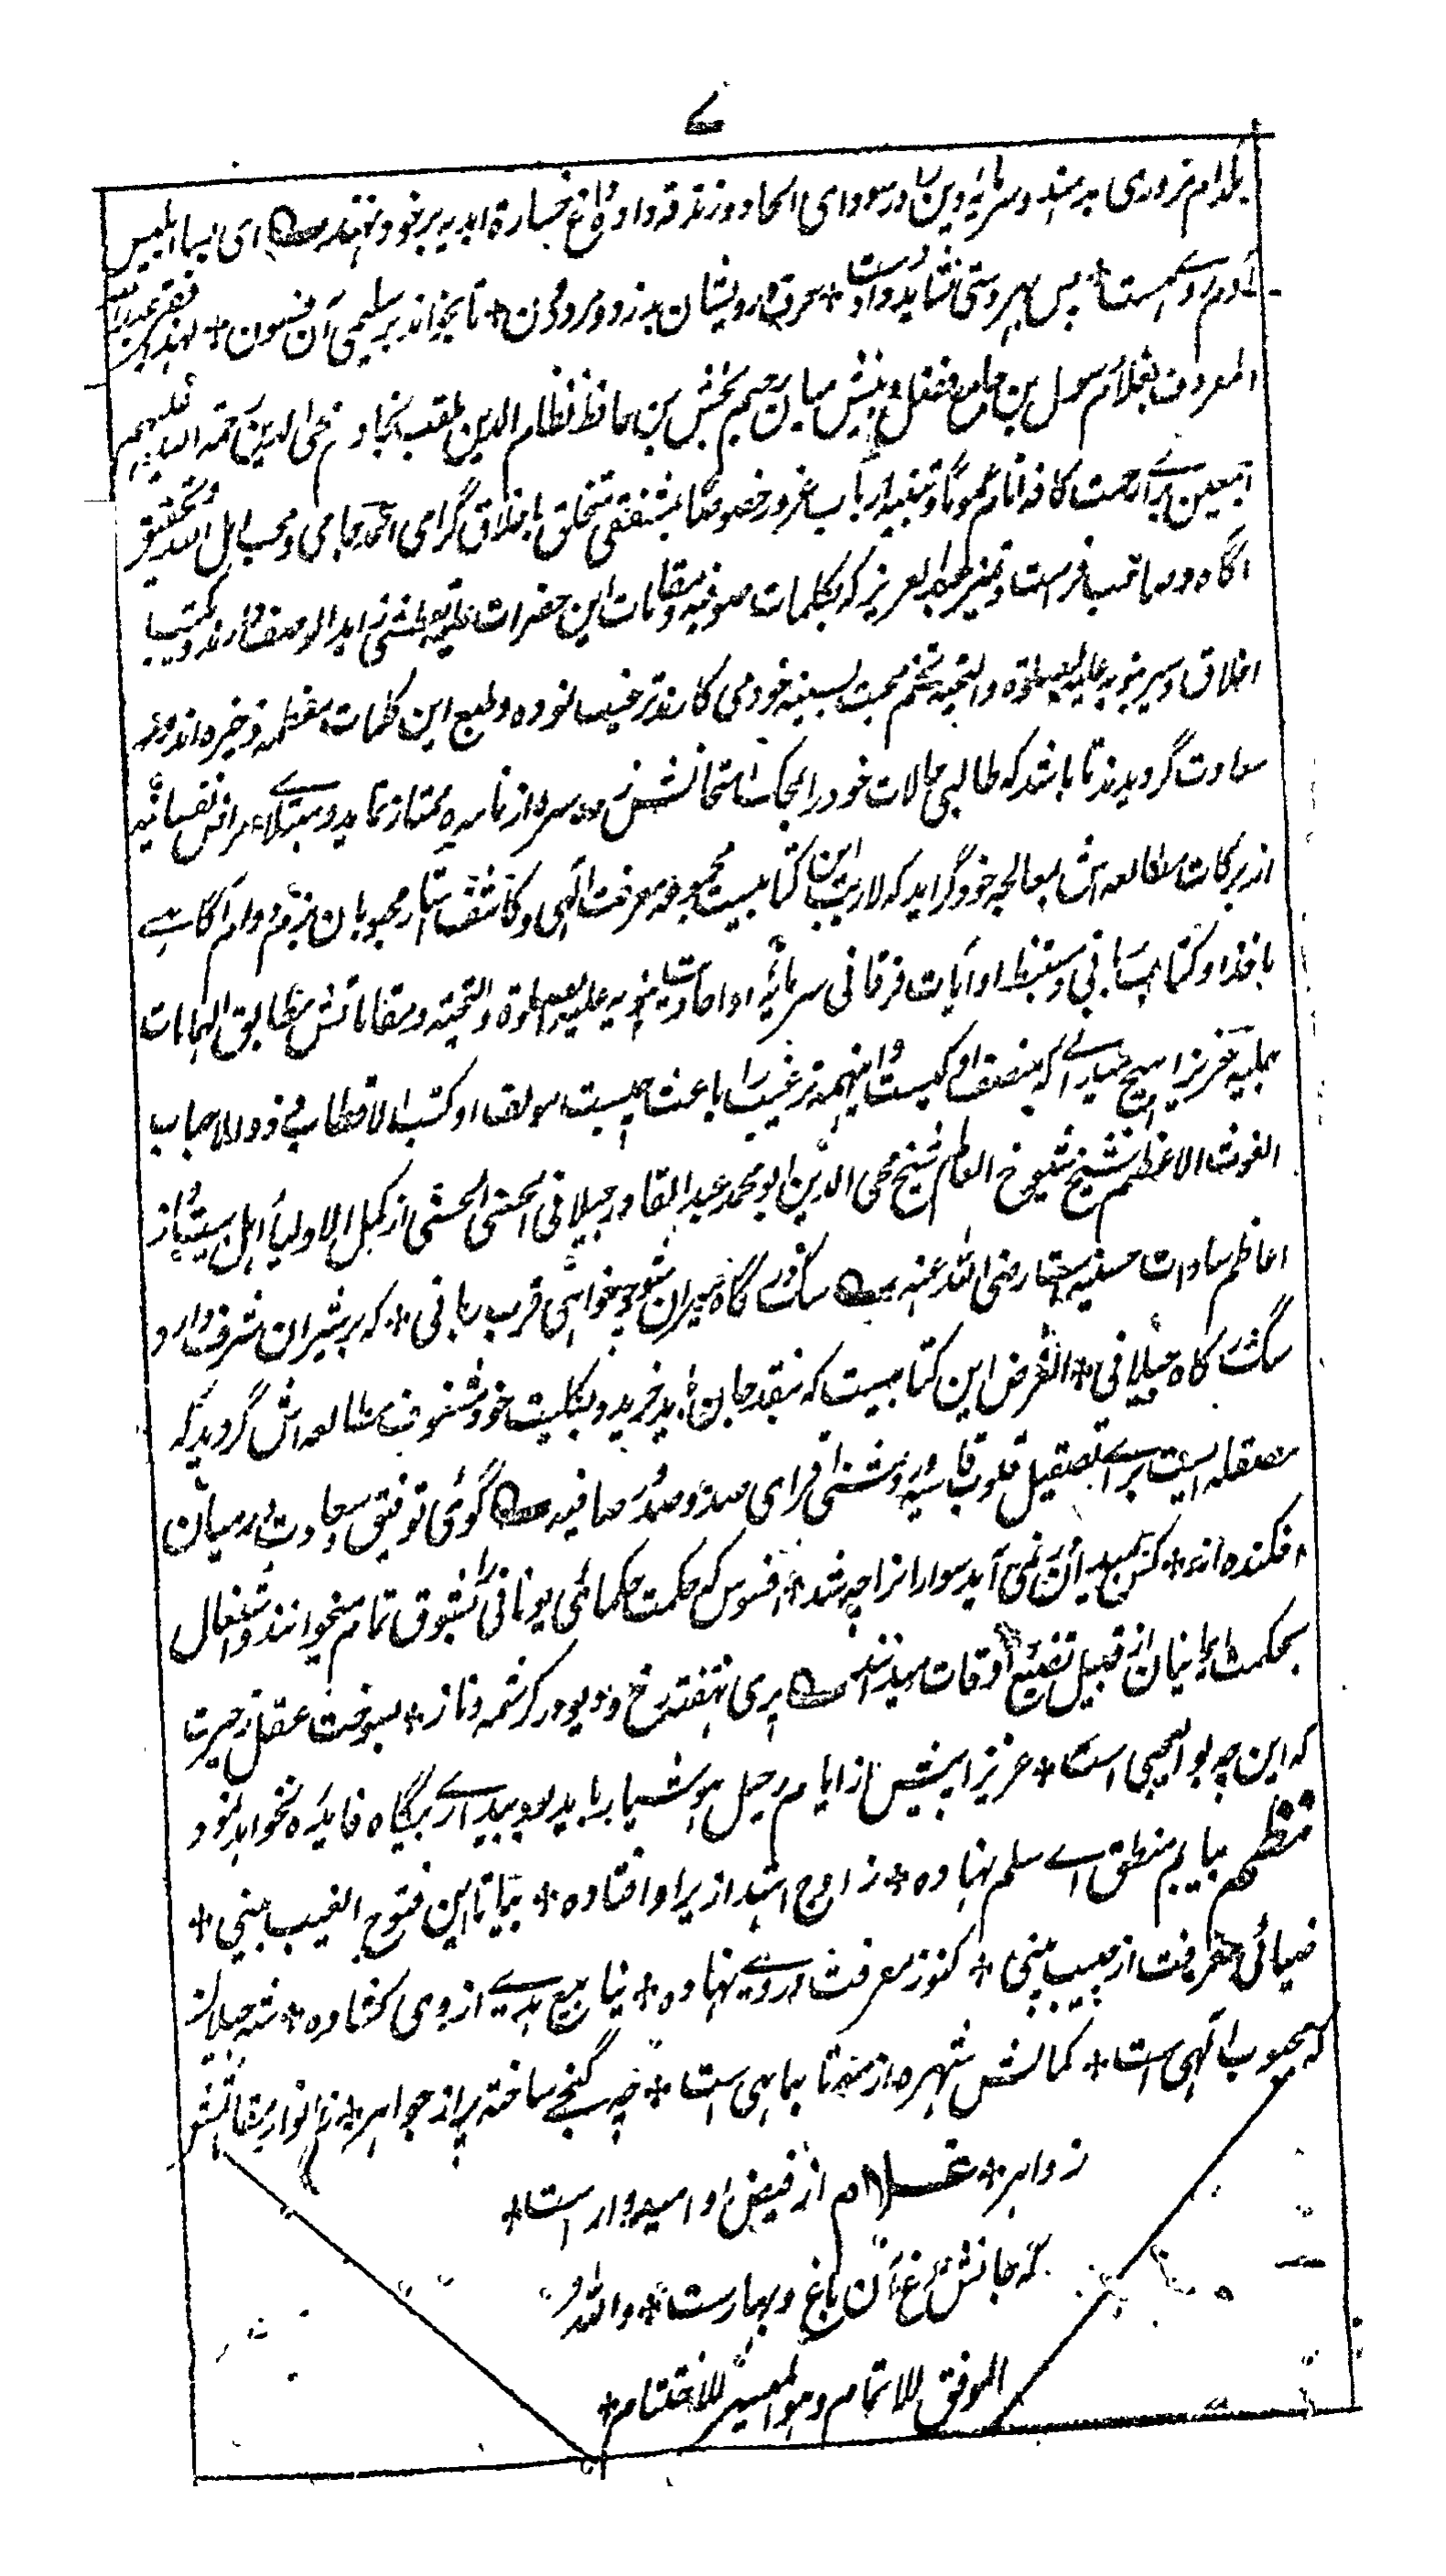 ۷
بکدام ضروری بدرسند و سرمایهٔ دین را در سودای الحاد و زندقه داده داغ خسارة ابدیه بر خود نهند ے ای بسا ابلیس
آدم روے هست + پس بهر دستی نشاید داد دست + حرف درویشان بدزدد مرد دون + تا بخواند بر سلیمی آن فسون + لهذا
المعروف بغلام بن میان رحیم بخش بن حافظ نظام الدین ملقب بخادم محی الدین رحمة الله علیهم
اجمعین براے نصحت کافه انام عموماً و تنبیه ارباب غرور خصوصاً بشفقی متخلق باخلاق گرامی احمد جامی و محب اهل الله
آگاه و صاحب فراست و تمیز عبد العزیز که بکلمات صوفیه و مقامات این حضرات علیه زاید الوصف دارند و کتب
اخلاق و سیر نبویه علیه الصلوة والتحیه تخم محبت بسینه خود می کارند ترغیب نموده و طبع این کلمات معظمه ذخیره اندوز
سعادت گردیدند تا باشد که طالبی حالات خود را بمحک امتحانش زده سره از ناسره ممتاز نماید و مبتلاے امراض نفسانیه
از برکات مطالعه اش بمعالجه خود گراید که لاریب این کتابیست مجموعه معرفت الٰهی و کاشف استار محبوبان بزم دوام آگاهے
ماخذ او کتاب و مستنبط او آیات فرقانی سرمایهٔ او احادیث نبویه علیه الصلوة والتحیته و مقاماتش مطابق الهامات
عزیزا هیچ میدانی که مصنف او کیست و اینهمه ترغیب را باعث چیست مولف او قطب الاقطاب
الغوث الاعظم شیخ شیوخ العالم شیخ محی الدین ابو محمد عبد القادر جیلانی الحسنی الحسینی از کمل الاولیا اهل بیت و از
اعاظم سادات حسنیه است رضی الله عنه ے سگ درگاه میران شو چو خواهی قرب ربانی + که بر شیران شرف دارد
سگ درگاه جیلانی + الغرض این کتابیست که بنقد جان باید خرید و بکلیت خود مشغوف مطالعه اش گردید که
مصقله ایست براے تصقیل قلوب قاسیه و روشنی افزای صدور صافیه ے گوئی توفیق سعادت در میان
افکنده اند + کس بمیدان در نمی آید سواران را چه شد + افسوس که حکمت حکمائی یونانی را بشوق تمام میخوانند و اشتغال
بحکمت ایمانیان از قبیل تضییع اوقات میدانند ے پری نهفته رخ و دیو در کرشمه و ناز + بسوخت عقل ز حیرت
که این چه بوالعجبی است + عزیزا پیش از ایام رحیل هوشیار باید بود بیدارے بیگاه فایده نخواهد نمود
نظم بیا یم منطق اے سلم نهاده + ز اوج ابتدا از پا فتاده + بیا تا این فتوح الغیب بینی +
ضیائی معرفت از جیب بینی + کنوز معرفت در وے نهاده + ینابیع هدے از وی کشاده + شه جیلان
که محبوب الٰهی است + کمالش شهره از مه تا بماهی است + چه گنجے ساخته پر از جواهر + ز انوار مقاماتش
زواهر + غلام از فیض او امیدوار است +
که جانش مرغ آن باغ و بهار است + والله
الموفق للاتمام و هو المیسر للاختتام +